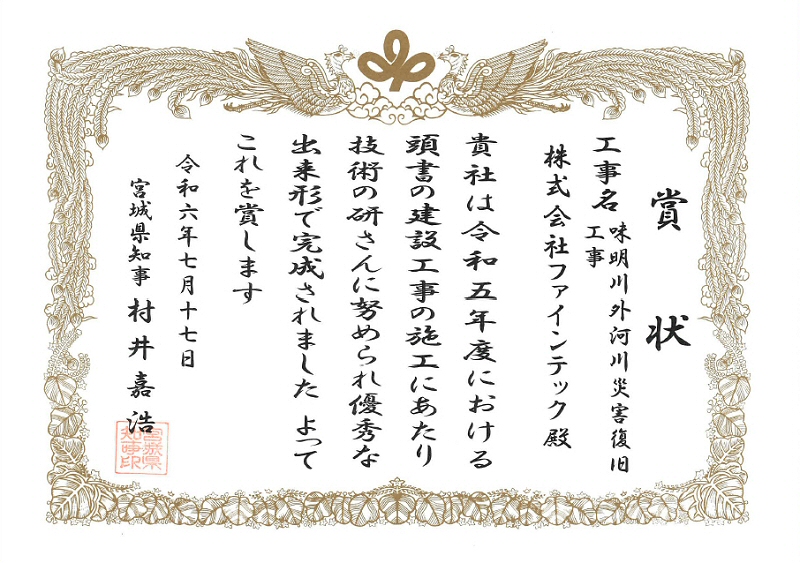 賞状
工事名 味明川外河川災害復旧
工事
株式会社ファインテック殿
貴社は令和五年度における
頭書の建設工事の施工にあたり
技術の研さんに努められ優秀な
出来形で完成されました よって
これを賞します
令和六年七月十七日
宮城県知事 村井嘉浩
宮城県
知事印